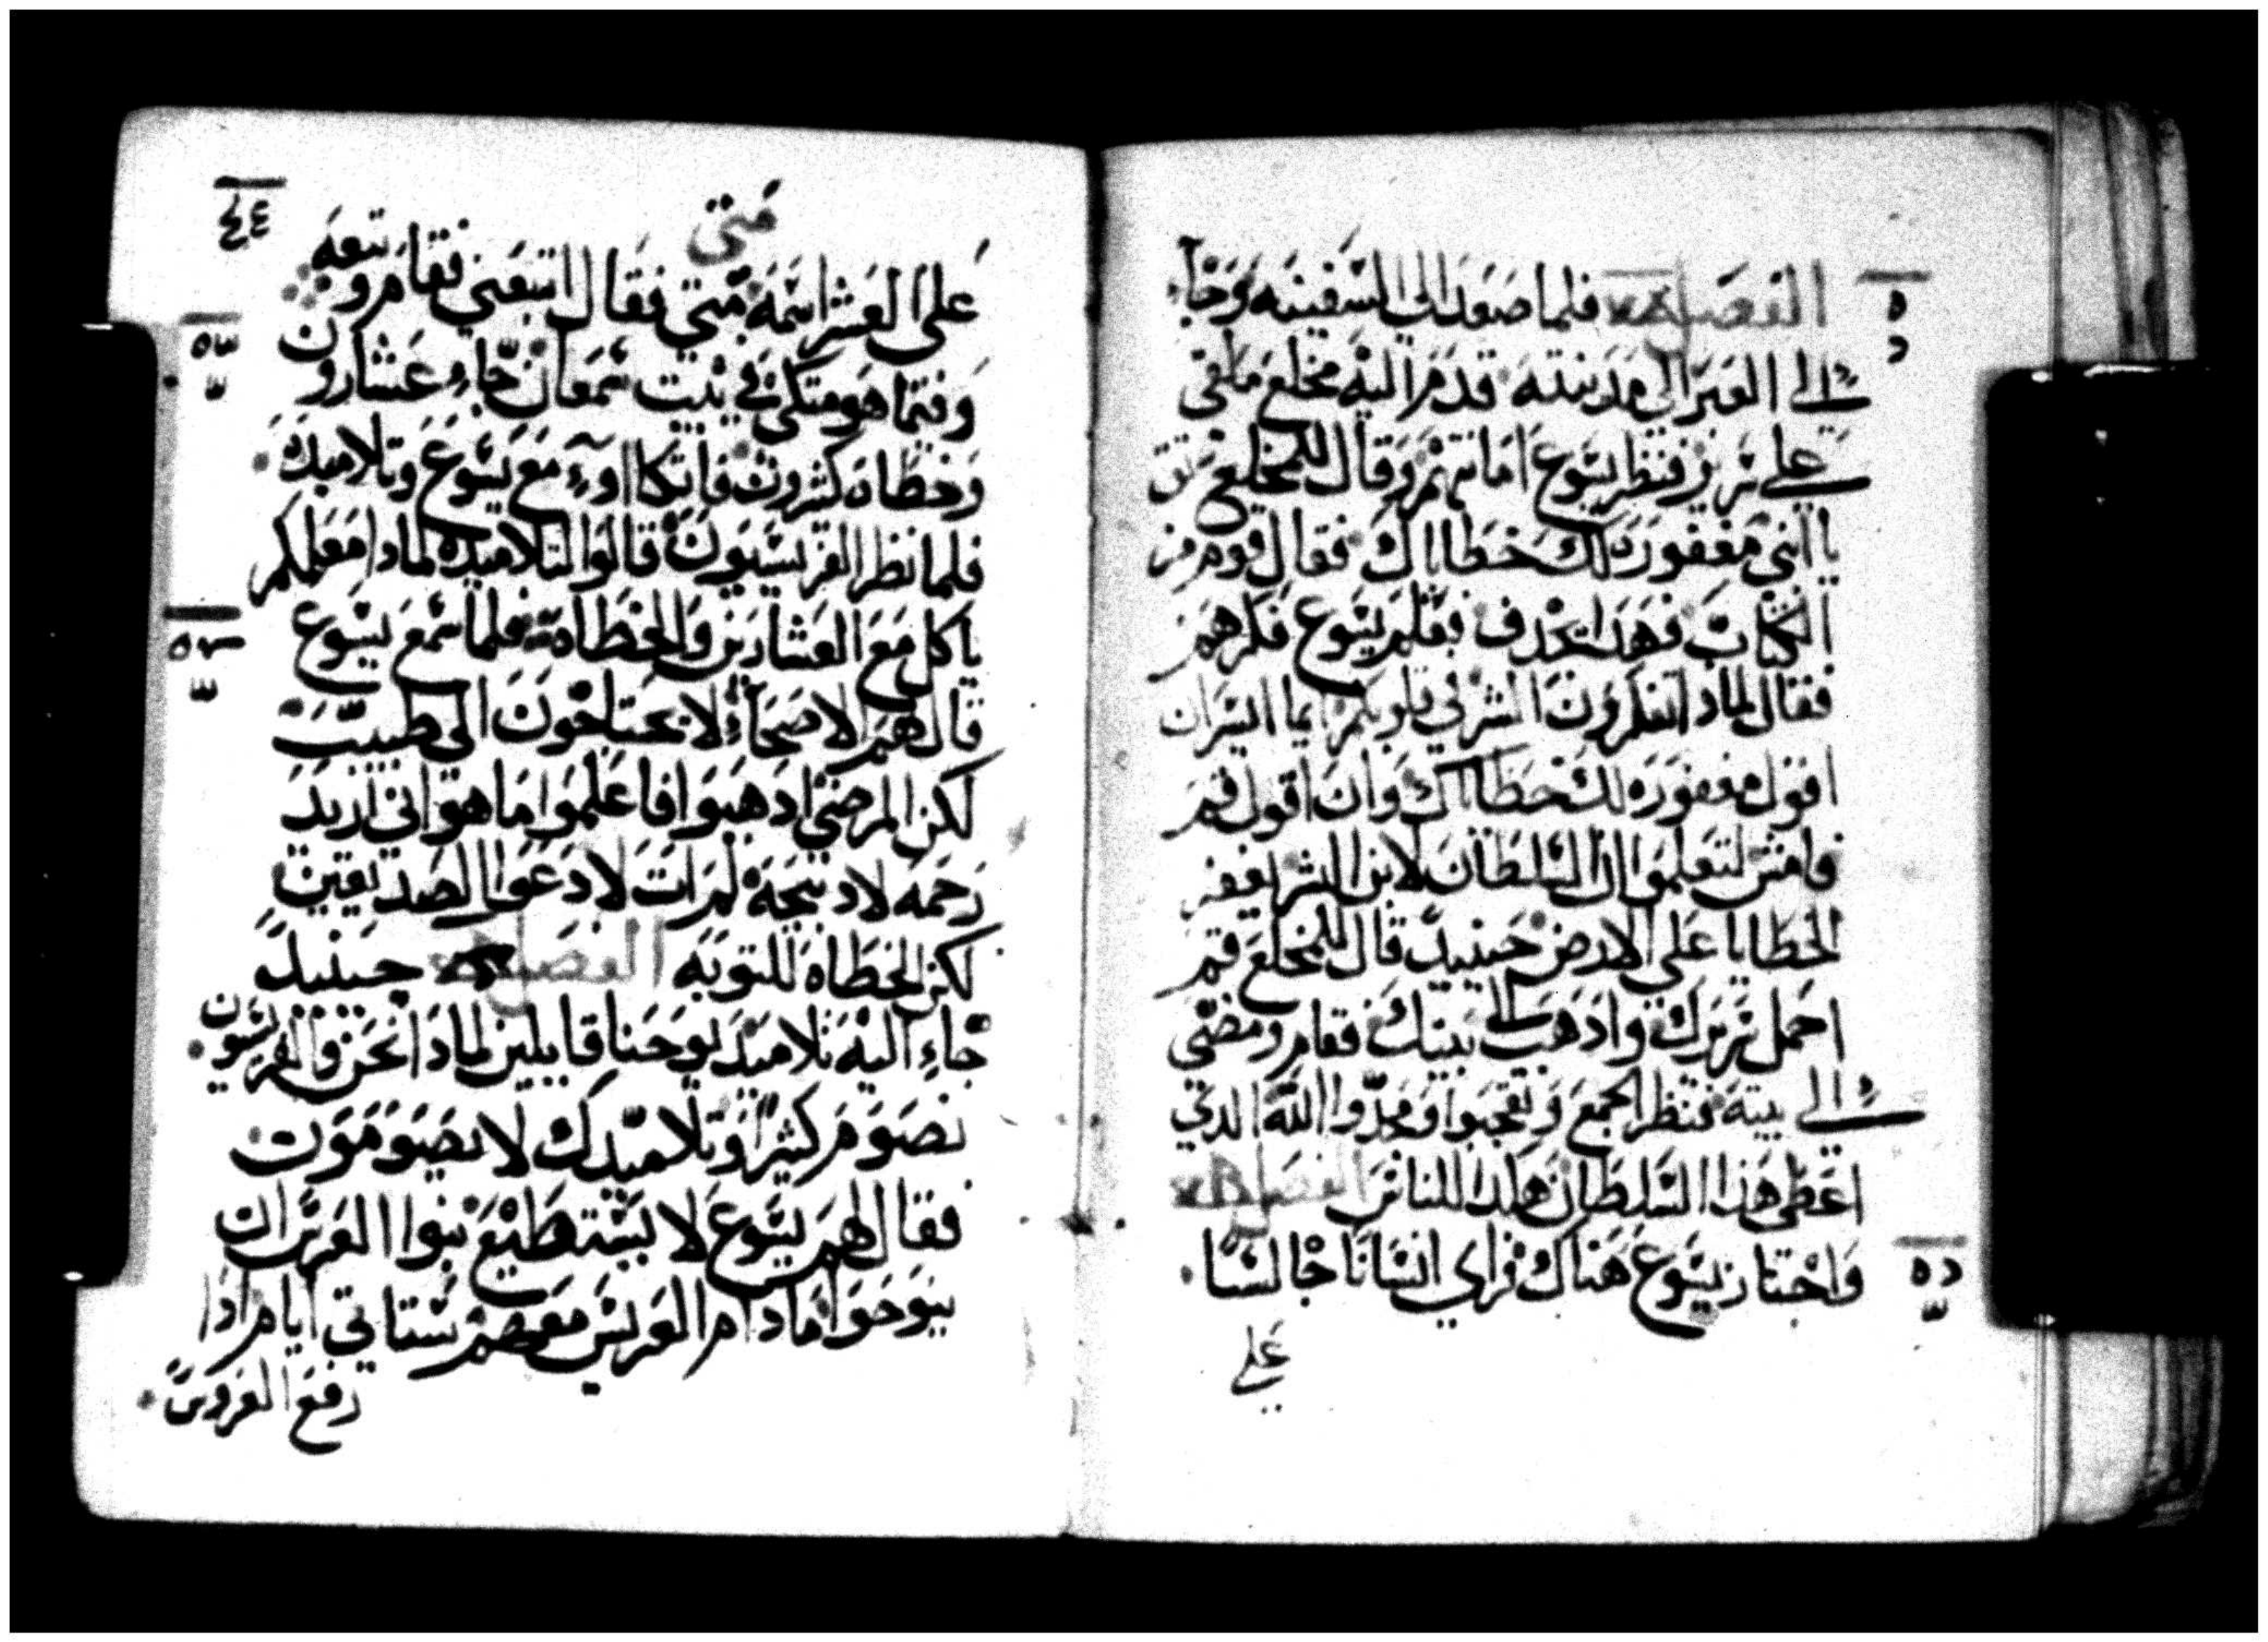 الفصل فلما صعد الى السفينه وجآء
الى العبر الى مدينته قدم اليه مخلع ملقى
على سرير فنظر يسوع امانتهم وقال للمخلع ثق
يا ابني مغفوره لك خطاياك فقال قوم من
الكتاب فهدا يجدف فعلم يسوع فكرهم
فقال لمادا تفكرون الشر في قلوبكم ايما ايسر ان
اقول مغفوره لك خطاياك وان اقول قم
فامش لتعلموا ان السلطان لابن البشر يغفر
الخطايا على الارض حينيد قال للمخلع قم
احمل سريرك وادهب الى بيتك فقام ومضى
الى بيته فنظر الجمع وتعجبوا ومجدوا الله الدي
اعطى هذا السلطان هكدا للناس الفصل
واجتاز يسوع هناك فراي انسانا جالسا
على
متى
على العشر اسمه متى فقال اتبعني فقام وتبعه
وفيما هو متكئ في بيت سمعان جاء عشارون
وخطاه كثيرون فاتكااوء مع يسوع وتلاميده
فلما نظر الفريسيون قالوا لتلاميده لمادا معلمكم
ياكل مع العشارين والخطاه فلما سمع يسوع
قال لهم الاصحاء لا يحتاجون الى طبيب
لكن المرضى ادهبوا فاعلموا ما هو اني اريد
رحمه لا دبيحة لم ات لادعوا الصديقين
لكن الخطاه للتوبه الفصل حينيد
جاء اليه تلاميد يوحنا قايلين لمادا نحن والفريسيون
نصوم كثيرا وتلاميدك لا يصومون
فقال لهم يسوع لا يستطيع بنوا العرس ان
ينوحوا ما دام العريس معهم ستاتي ايام ادا
رفع العروس